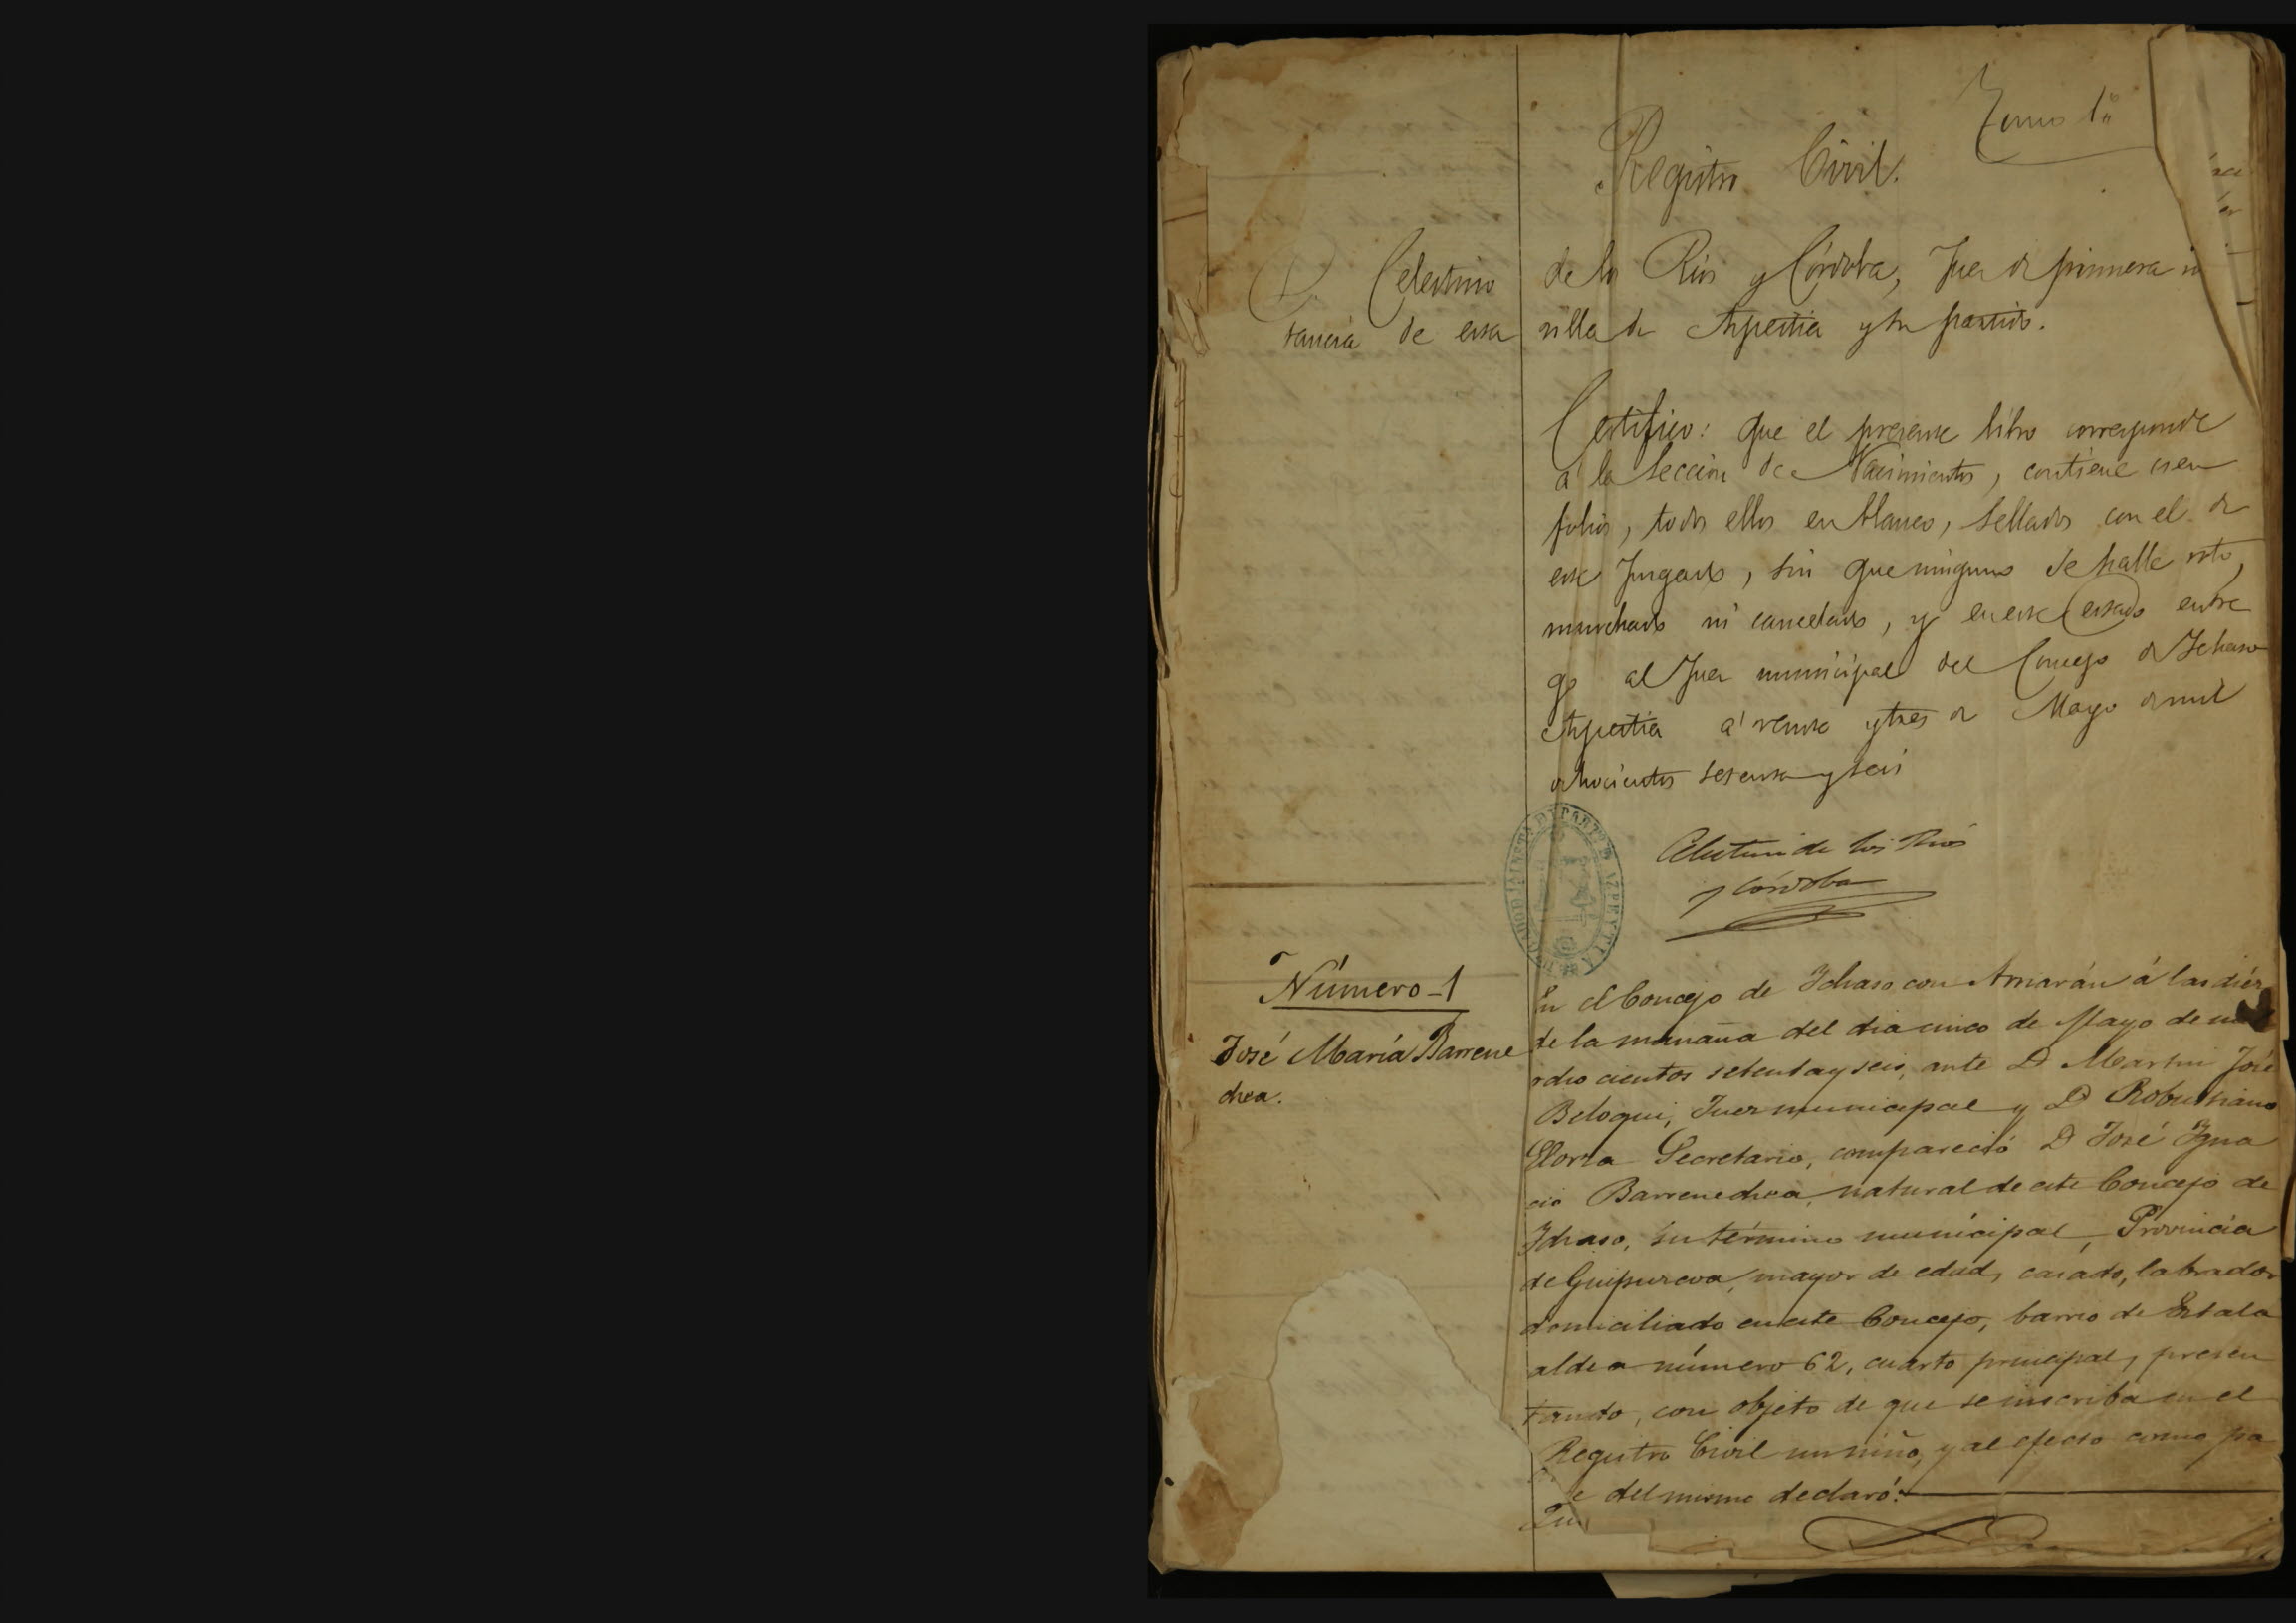 Tomo 1º
Registro Civil.
D. Celestino de los Rios y Córdoba, Juez de primera ins
tancia de esta villa de Azpeitia y su partido.
Certifico: Que el presente libro corresponde
á la Seccion de Nacimientos, contiene cien
folios, todos ellos en blanco, sellados con el de
este Juzgado, sin que ninguno se halle roto,
manchado ni cancelado, y en este estado entre
go al Juez municipal del Concejo de Ichaso
Azpeitia á veinte y tres de Mayo de mil
ochocientos setenta y seis
Celestino de los Rios
y Córdoba
JUZGADO DE 1ª INSTA DE PARTIDO AZPEYTIA
Número-1
José María Barrene
chea.
En el Concejo de Ichaso con Arriarán á las diéz
de la mañana del dia cinco de Mayo de mil
ocho cientos setenta y seis, ante D Martin José
Beloqui, Juez municipal y D Robustiano
Elorza Secretario, compareció D José Igna
cio Barrenechea, natural de este Concejo de
Ichaso, su término municipal, Provincia
de Guipuzcoa, mayor de edad, casado, labrador
domiciliado en este Concejo, barrio de
aldea número 62, cuarto principal, presen
tando, con objeto de que se inscriba en el
Registro Civil un niño, y al efecto como pa
e del mismo declaró:
Que